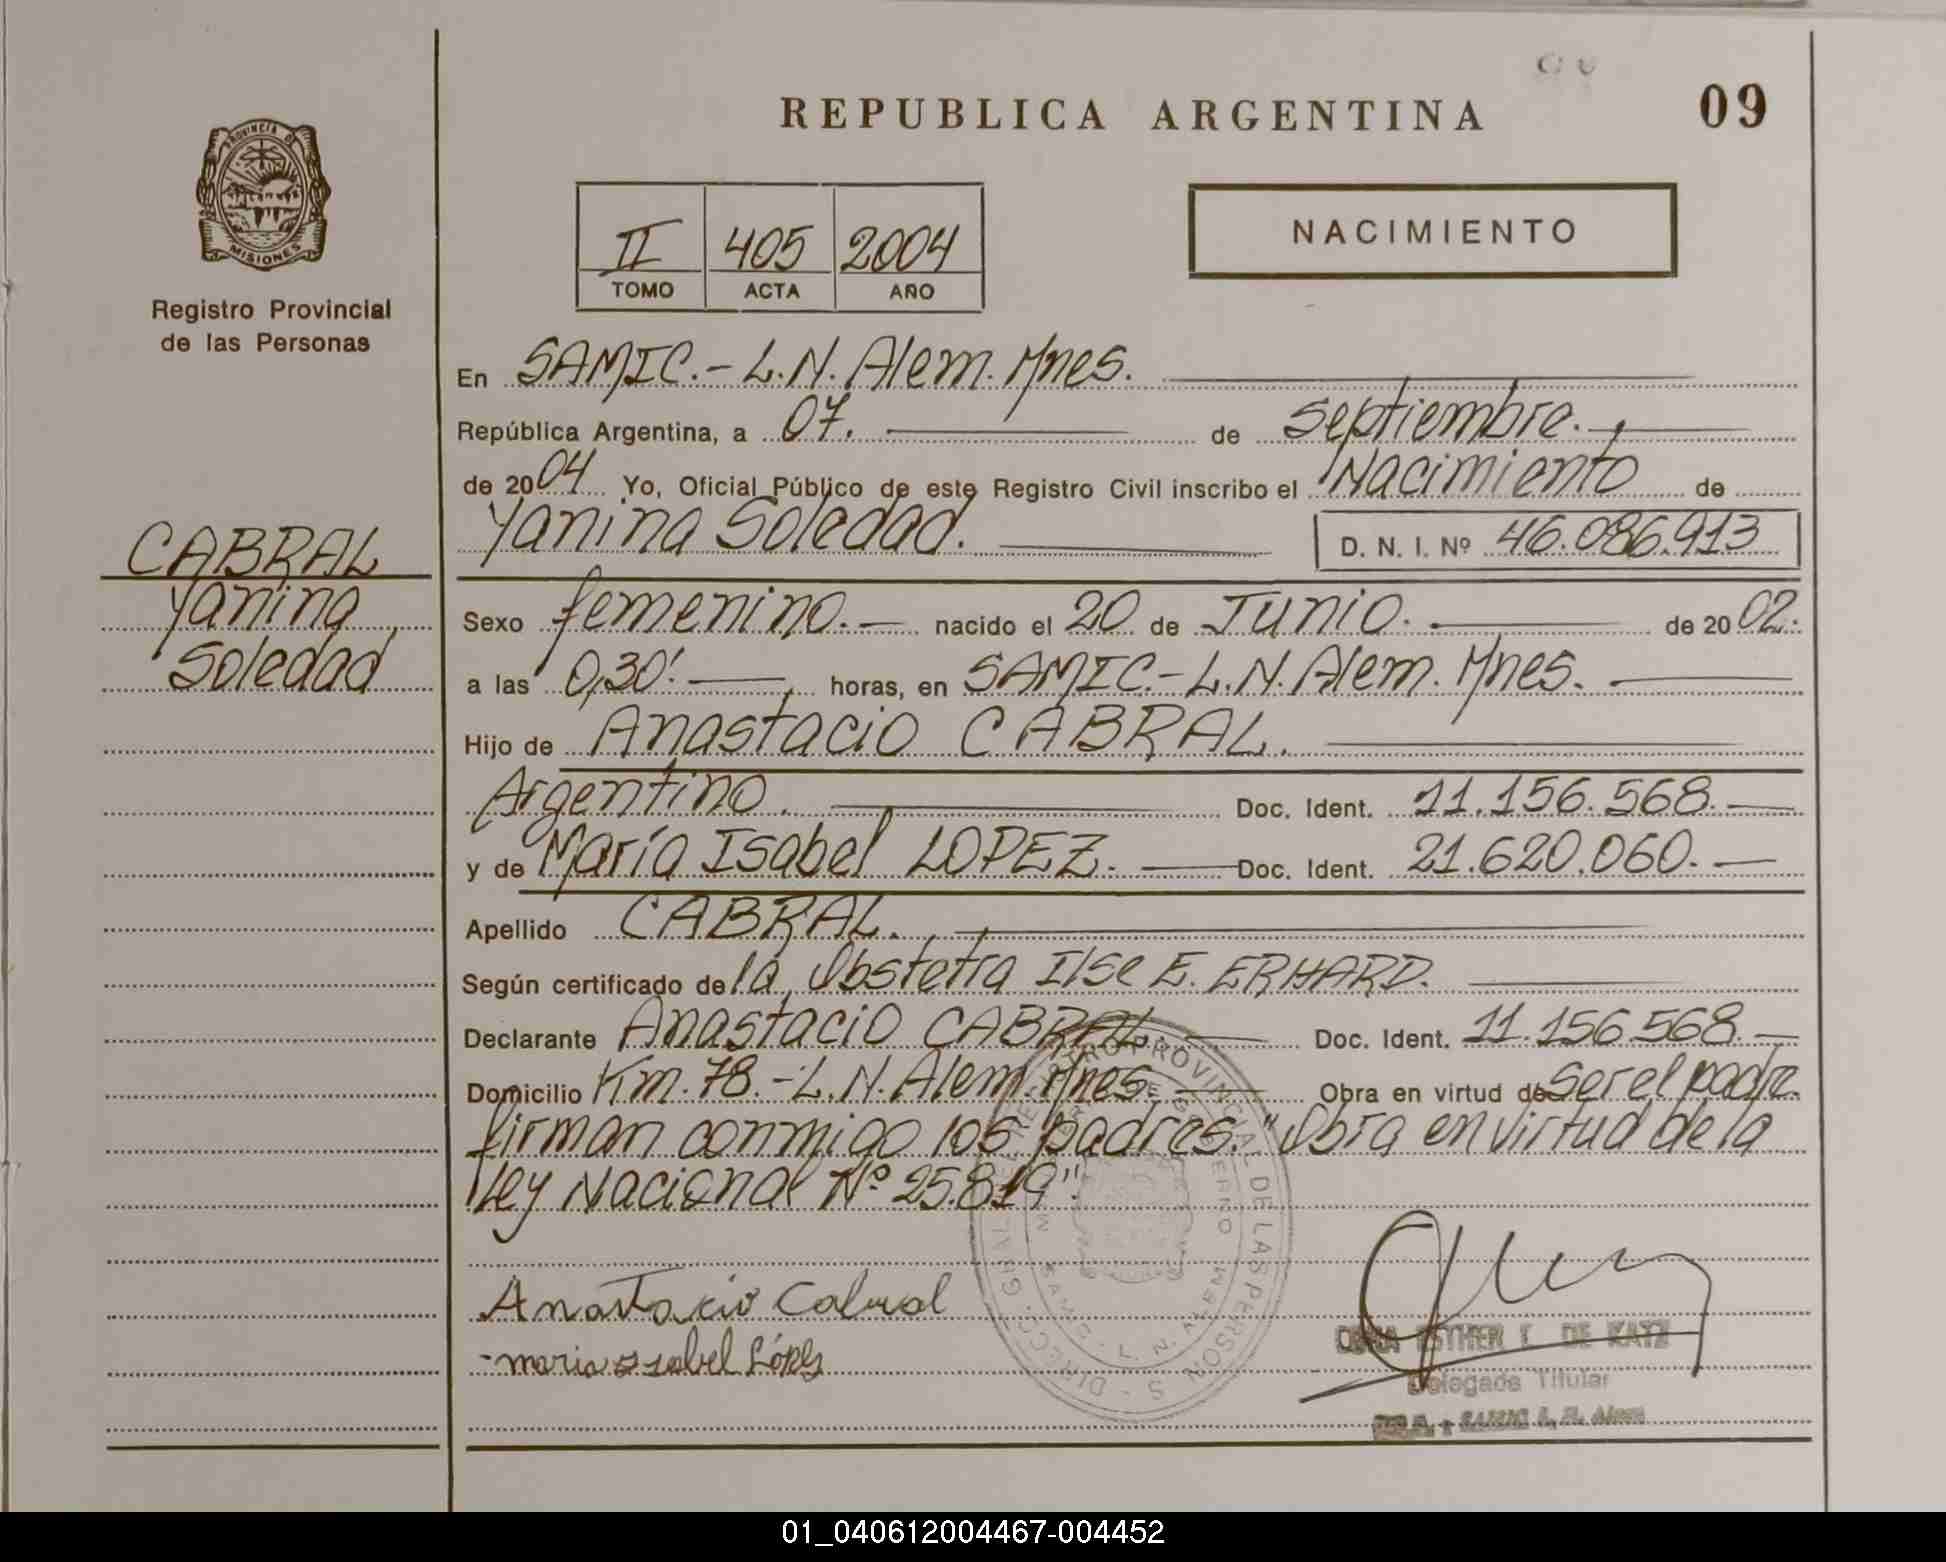 REPUBLICA ARGENTINA
09
PROVINCIA DE
MISIONES
Registro Provincial
de las Personas
II 405 2004
TOMO ACTA AÑO
NACIMIENTO
En SAMIC.- L.N. Alem. Mnes.
República Argentina, a 07. de septiembre.
de 2004 Yo, Oficial Público de este Registro Civil inscribo el Nacimiento de
Yanina Soledad. D. N. I. Nº 46.086.913
CABRAL
Yanina
Soledad
Sexo femenino. nacido el 20 de Junio. de 2002.
a las 0,30'. horas, en SAMIC.- L.N. Alem. Mnes.
Hijo de Anastacio CABRAL.
Argentino. Doc. Ident. 11.156.568.
y de María Isabel LOPEZ. Doc. Ident. 21.620.060.
Apellido CABRAL.
Según certificado de la Obstetra Ilse E. ERHARD.
Declarante Anastacio CABRAL. Doc. Ident. 11.156.568.
Domicilio Km. 78.- L.N. Alem. Mnes. Obra en virtud de ser el padre.
firman conmigo los padres. "Obra en virtud de la
Ley Nacional Nº 25.819".
Anastacio Cabral
maria isabel López
ESTHER DE KATZ
Delegada Titular
SAMIC L. N. Alem
01_040612004467-004452